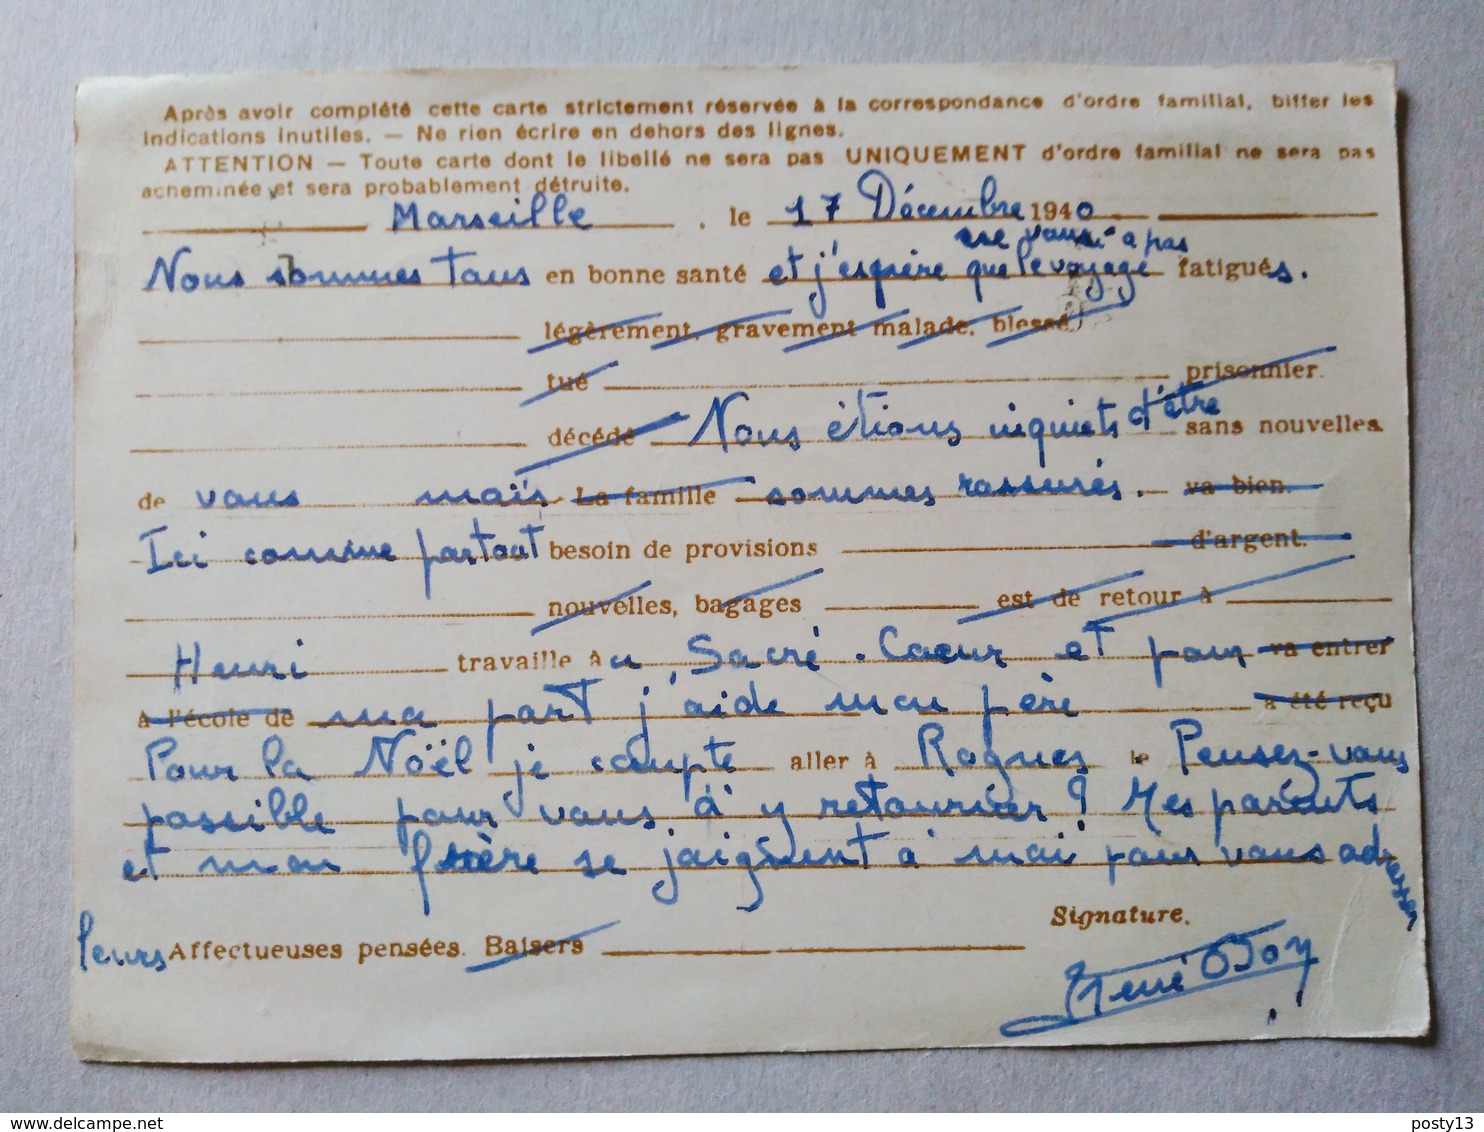 Après avoir complété cette carte strictement réservée à la correspondance d'ordre familial, biffer les
indications inutiles. — Ne rien écrire en dehors des lignes.
ATTENTION — Toute carte dont le libellé ne sera pas UNIQUEMENT d'ordre familial ne sera pas
acheminée et sera probablement détruite.
Marseille, le 17 Décembre 1940
ne vous a pas
Nous sommes tous en bonne santé et j'espère que le voyage fatigués.
légèrement, gravement malade, blessé.
tué prisonnier.
décédé Nous étions inquiets d'être sans nouvelles
de vous mais La famille sommes rassurés. va bien.
Ici comme partout besoin de provisions d'argent.
nouvelles, bagages est de retour à
Henri travaille au Sacré-Coeur et pour va entrer
à l'école de ma part j'aide mon père a été reçu
Pour la Noël je compte aller à Rognes le Pensez-vous
possible pour vous d'y retourner? Mes parents
et mon frère se joignent à moi pour vous adresser
leurs Affectueuses pensées. Baisers
Signature.
René
posty13